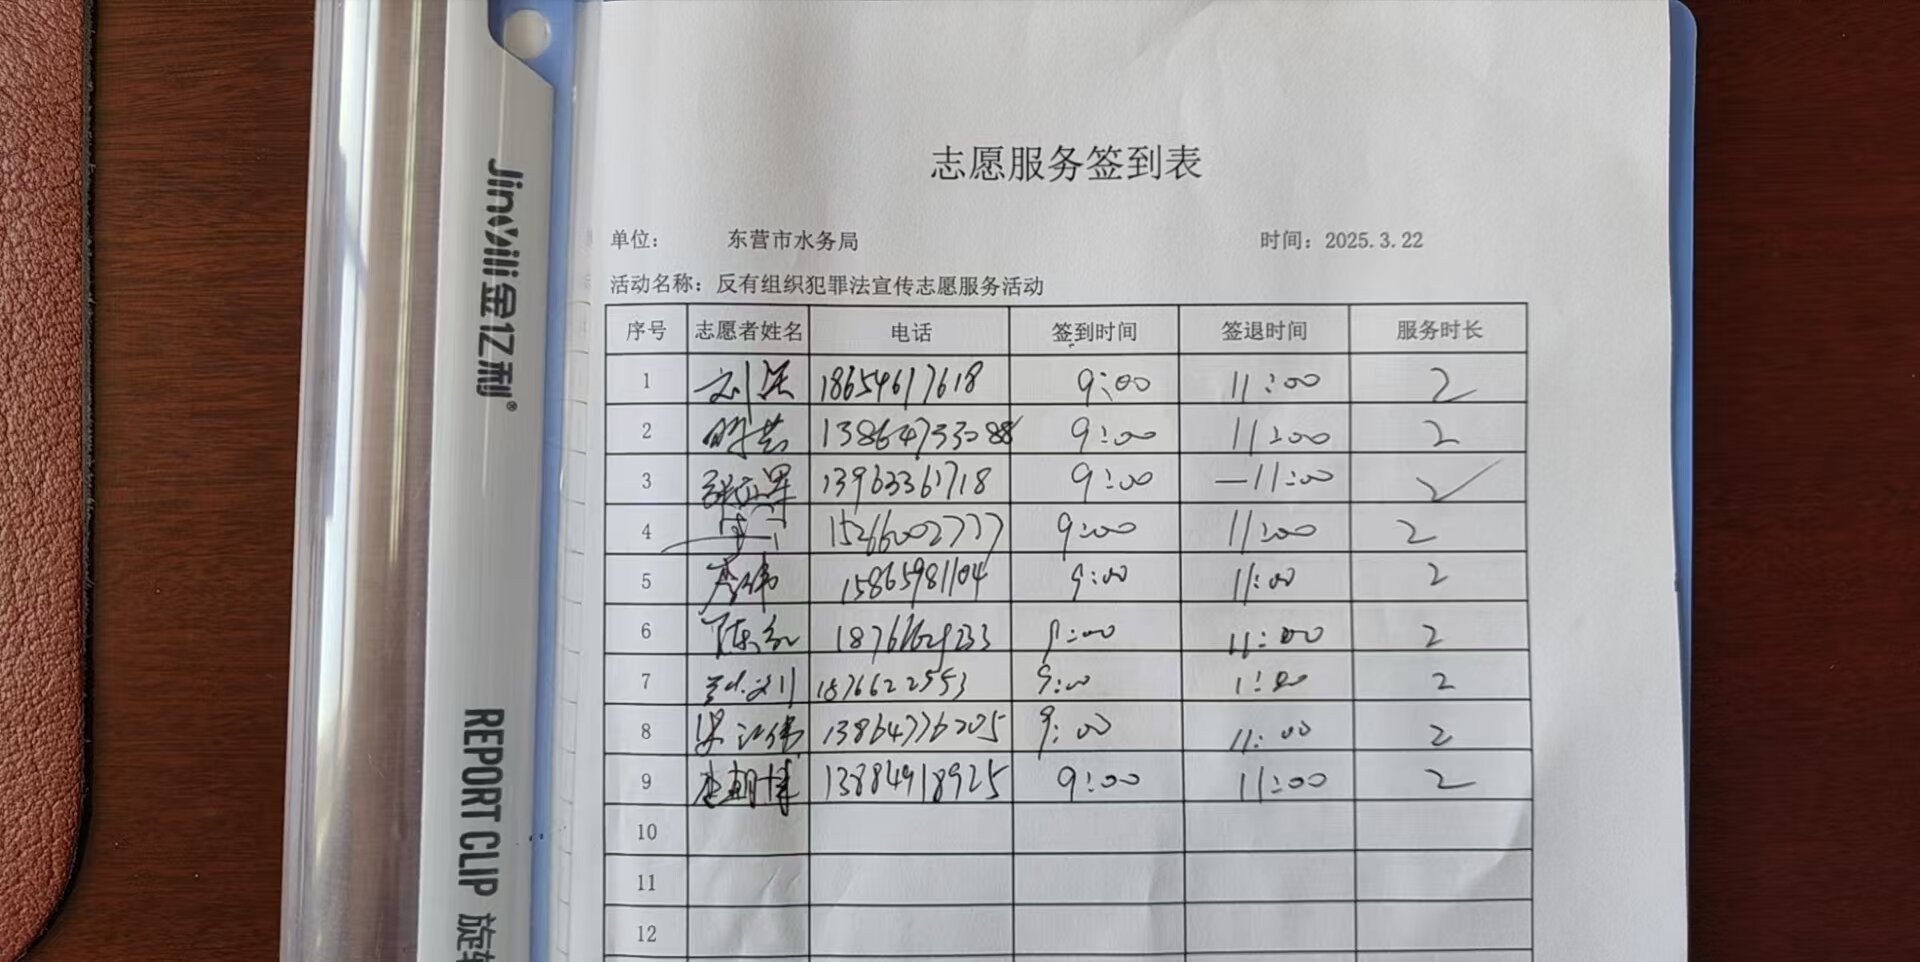 志愿服务签到表
单位： 东营市水务局 时间：2025.3.22
活动名称：反有组织犯罪法宣传志愿服务活动
序号 志愿者姓名 电话 签到时间 签退时间 服务时长
1 18654617618 9:00 11:00 2
2 13864733088 9:00 11:00 2
3 13963361718 9:00 —11:00 2
4 15266002777 9:00 11:00 2
5 15865981104 9:00 11:00 2
6 陈红 9:00 11:00 2
7 1876622553 9:00 1:00 2
8 梁江伟 13864776205 9:00 11:00 2
9 13884918925 9:00 11:00 2
10
11
12
Jinyili 金亿利®
REPORT CLIP